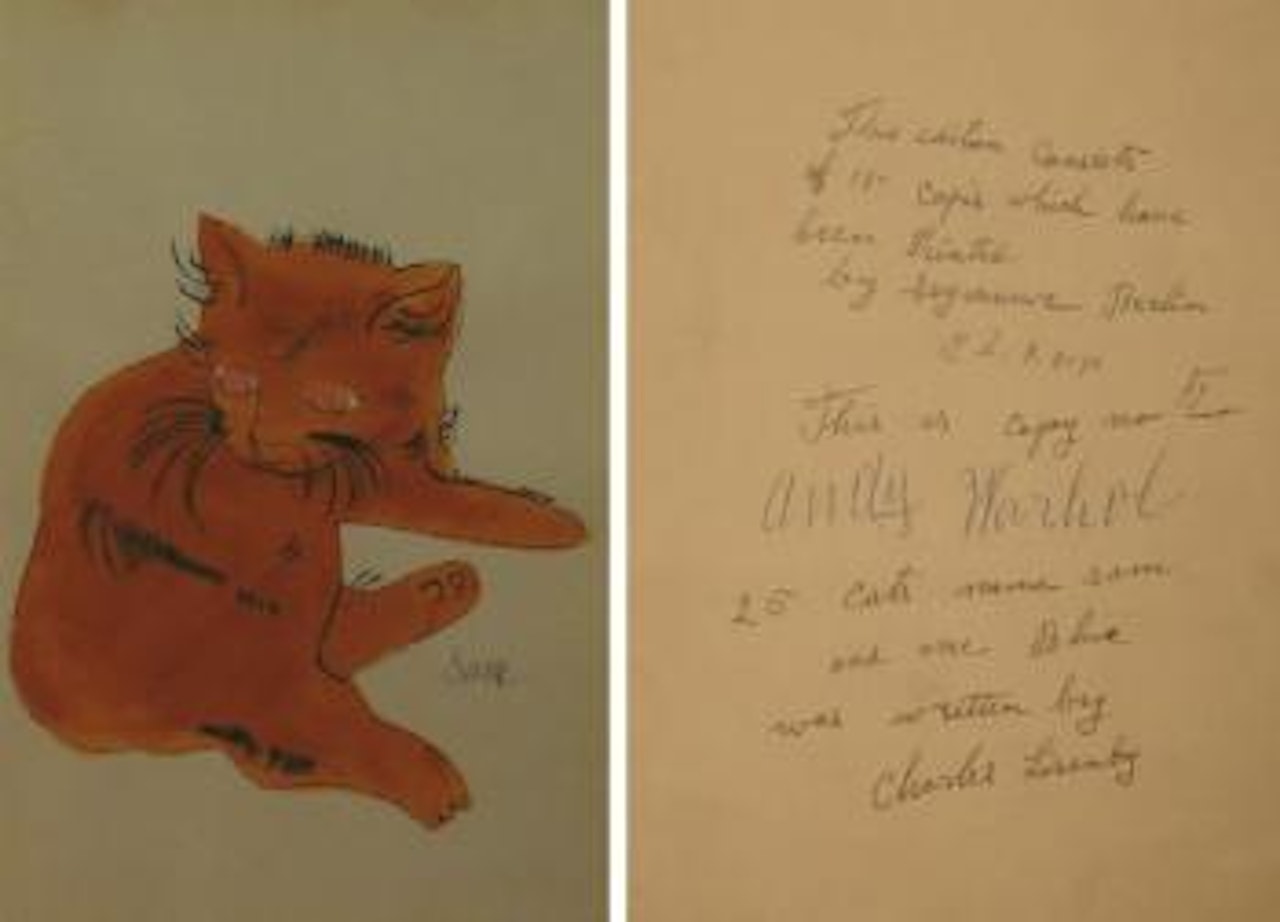 Sam
This edition consists
of copies which have
been Printed
by Seymour Berlin
This is copy no
Andy Warhol
25 Cats name sam
and one Blue
was written by
Charles Lisanby